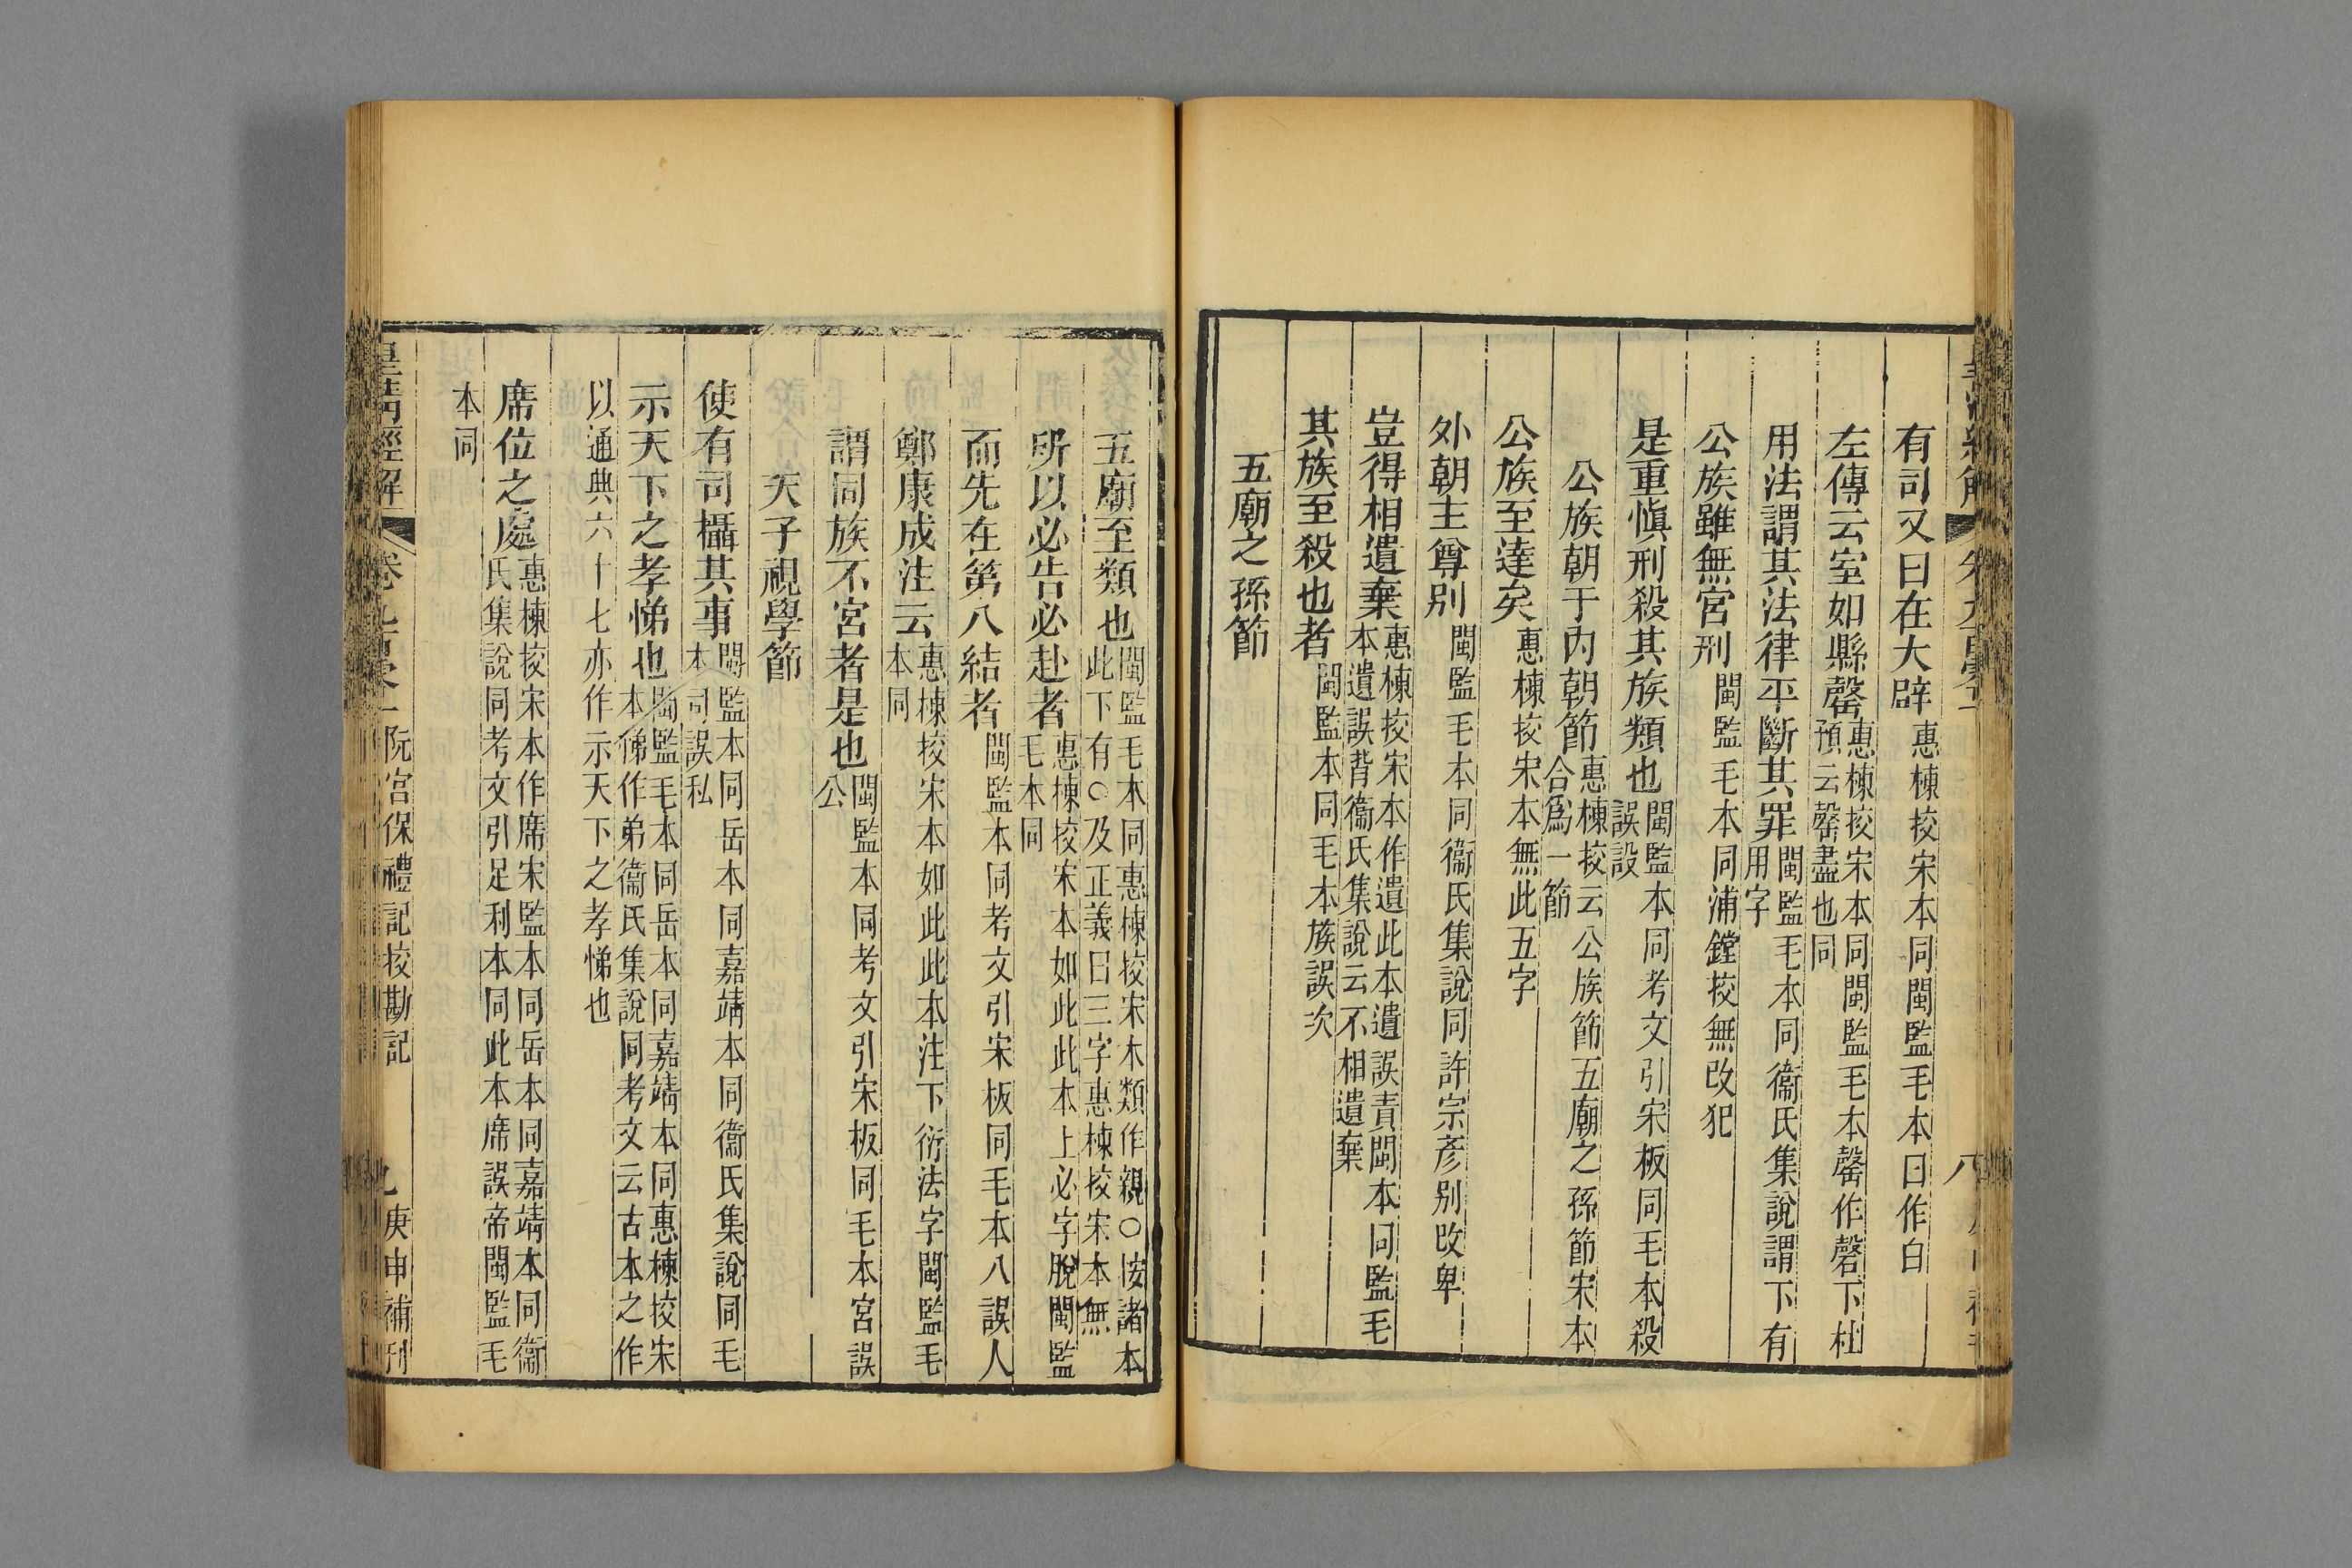 有司又曰在大辟惠棟挍宋本同閩監毛本曰作白
左傳云室如縣罄惠棟挍宋本同閩監毛本罄作磬下杜預云罄盡也同
用法謂其法律平斷其罪閩監毛本同衞氏集說謂下有用字
公族雖無宮刑閩監毛本同浦鏜挍無改犯
是重愼刑殺其族類也閩監本同考文引宋板同毛本殺誤設
公族朝于內朝節惠棟挍云公族節五廟之孫節宋本合爲一節
公族至達矣惠棟挍宋本無此五字
外朝主尊別閩監毛本同衞氏集說同許宗彥別改卑
豈得相遺棄惠棟挍宋本作遺此本遺誤責閩本同監毛本遺誤背衞氏集說云不相遺棄
其族至殺也者閩監本同毛本族誤次
五廟之孫節
五廟至類也閩監毛本同惠棟挍宋本類作親○按諸本此下有○及正義曰三字惠棟挍宋本無
所以必告必赴者惠棟挍宋本如此此本上必字脫閩監毛本同
而先在第八結者閩監本同考文引宋板同毛本八誤人
鄭康成注云惠棟挍宋本如此此本注下衍法字閩監毛本同
謂同族不宮者是也閩監本同考文引宋板同毛本宮誤公
天子視學節
使有司攝其事閩監本同岳本同嘉靖本同衞氏集說同毛本司誤私
示天下之孝悌也閩監毛本同岳本同嘉靖本同惠棟挍宋本悌作弟衞氏集說同考文云古本之作
以通典六十七亦作示天下之孝悌也
席位之處惠棟挍宋本作席宋監本同岳本同嘉靖本同衞氏集說同考文引足利本同此本席誤帝閩監毛
本同
皇清經解 卷九百零一 阮宮保禮記挍勘記 九 庚申補刊